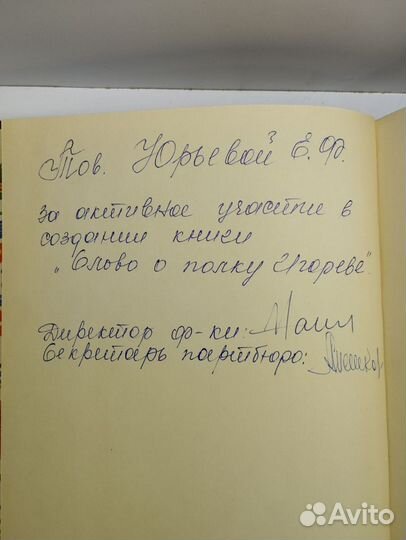 Тов. Юрьевой Е.Ф.
за активное участие в
создании книги
„Слово о полку Игореве"
Директор ф-ки:
Секретарь партбюро:
Avito